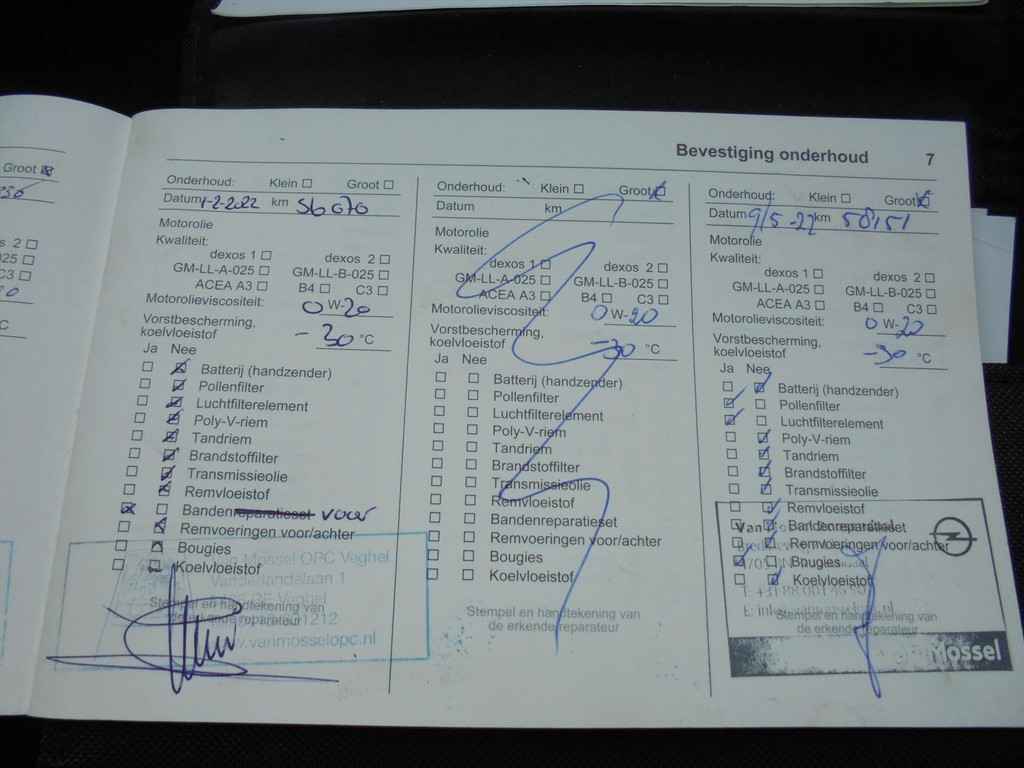 Bevestiging onderhoud 7
Groot
Onderhoud: Klein Groot
Datum 1-2-2022 km 56 070
Motorolie
Kwaliteit:
dexos 1 dexos 2
GM-LL-A-025 GM-LL-B-025
ACEA A3 B4 C3
Motorolieviscositeit: 0 W-20
Vorstbescherming,
koelvloeistof -30 °C
Ja Nee
Batterij (handzender)
Pollenfilter
Luchtfilterelement
Poly-V-riem
Tandriem
Brandstoffilter
Transmissieolie
Remvloeistof
Bandenreparatieset voor
Remvoeringen voor/achter
Bougies
Koelvloeistof
Mossel OPC Veghel
Vanderlandelaan 1
Veghel
Stempel en handtekening van
de erkende reparateur
1212
www.vanmosselopc.nl
Onderhoud: Klein Groot
Datum km
Motorolie
Kwaliteit:
dexos 1 dexos 2
GM-LL-A-025 GM-LL-B-025
ACEA A3 B4 C3
Motorolieviscositeit: 0 W-20
Vorstbescherming,
koelvloeistof -30 °C
Ja Nee
Batterij (handzender)
Pollenfilter
Luchtfilterelement
Poly-V-riem
Tandriem
Brandstoffilter
Transmissieolie
Remvloeistof
Bandenreparatieset
Remvoeringen voor/achter
Bougies
Koelvloeistof
Stempel en handtekening van
de erkende reparateur
Onderhoud: Klein Groot
Datum 9/5-22 km 58151
Motorolie
Kwaliteit:
dexos 1 dexos 2
GM-LL-A-025 GM-LL-B-025
ACEA A3 B4 C3
Motorolieviscositeit: 0 W-20
Vorstbescherming,
koelvloeistof -30 °C
Ja Nee
Batterij (handzender)
Pollenfilter
Luchtfilterelement
Poly-V-riem
Tandriem
Brandstoffilter
Transmissieolie
Remvloeistof
Bandenreparatieset
Remvoeringen voor/achter
Bougies
Koelvloeistof
Stempel en handtekening van
de erkende reparateur
Mossel